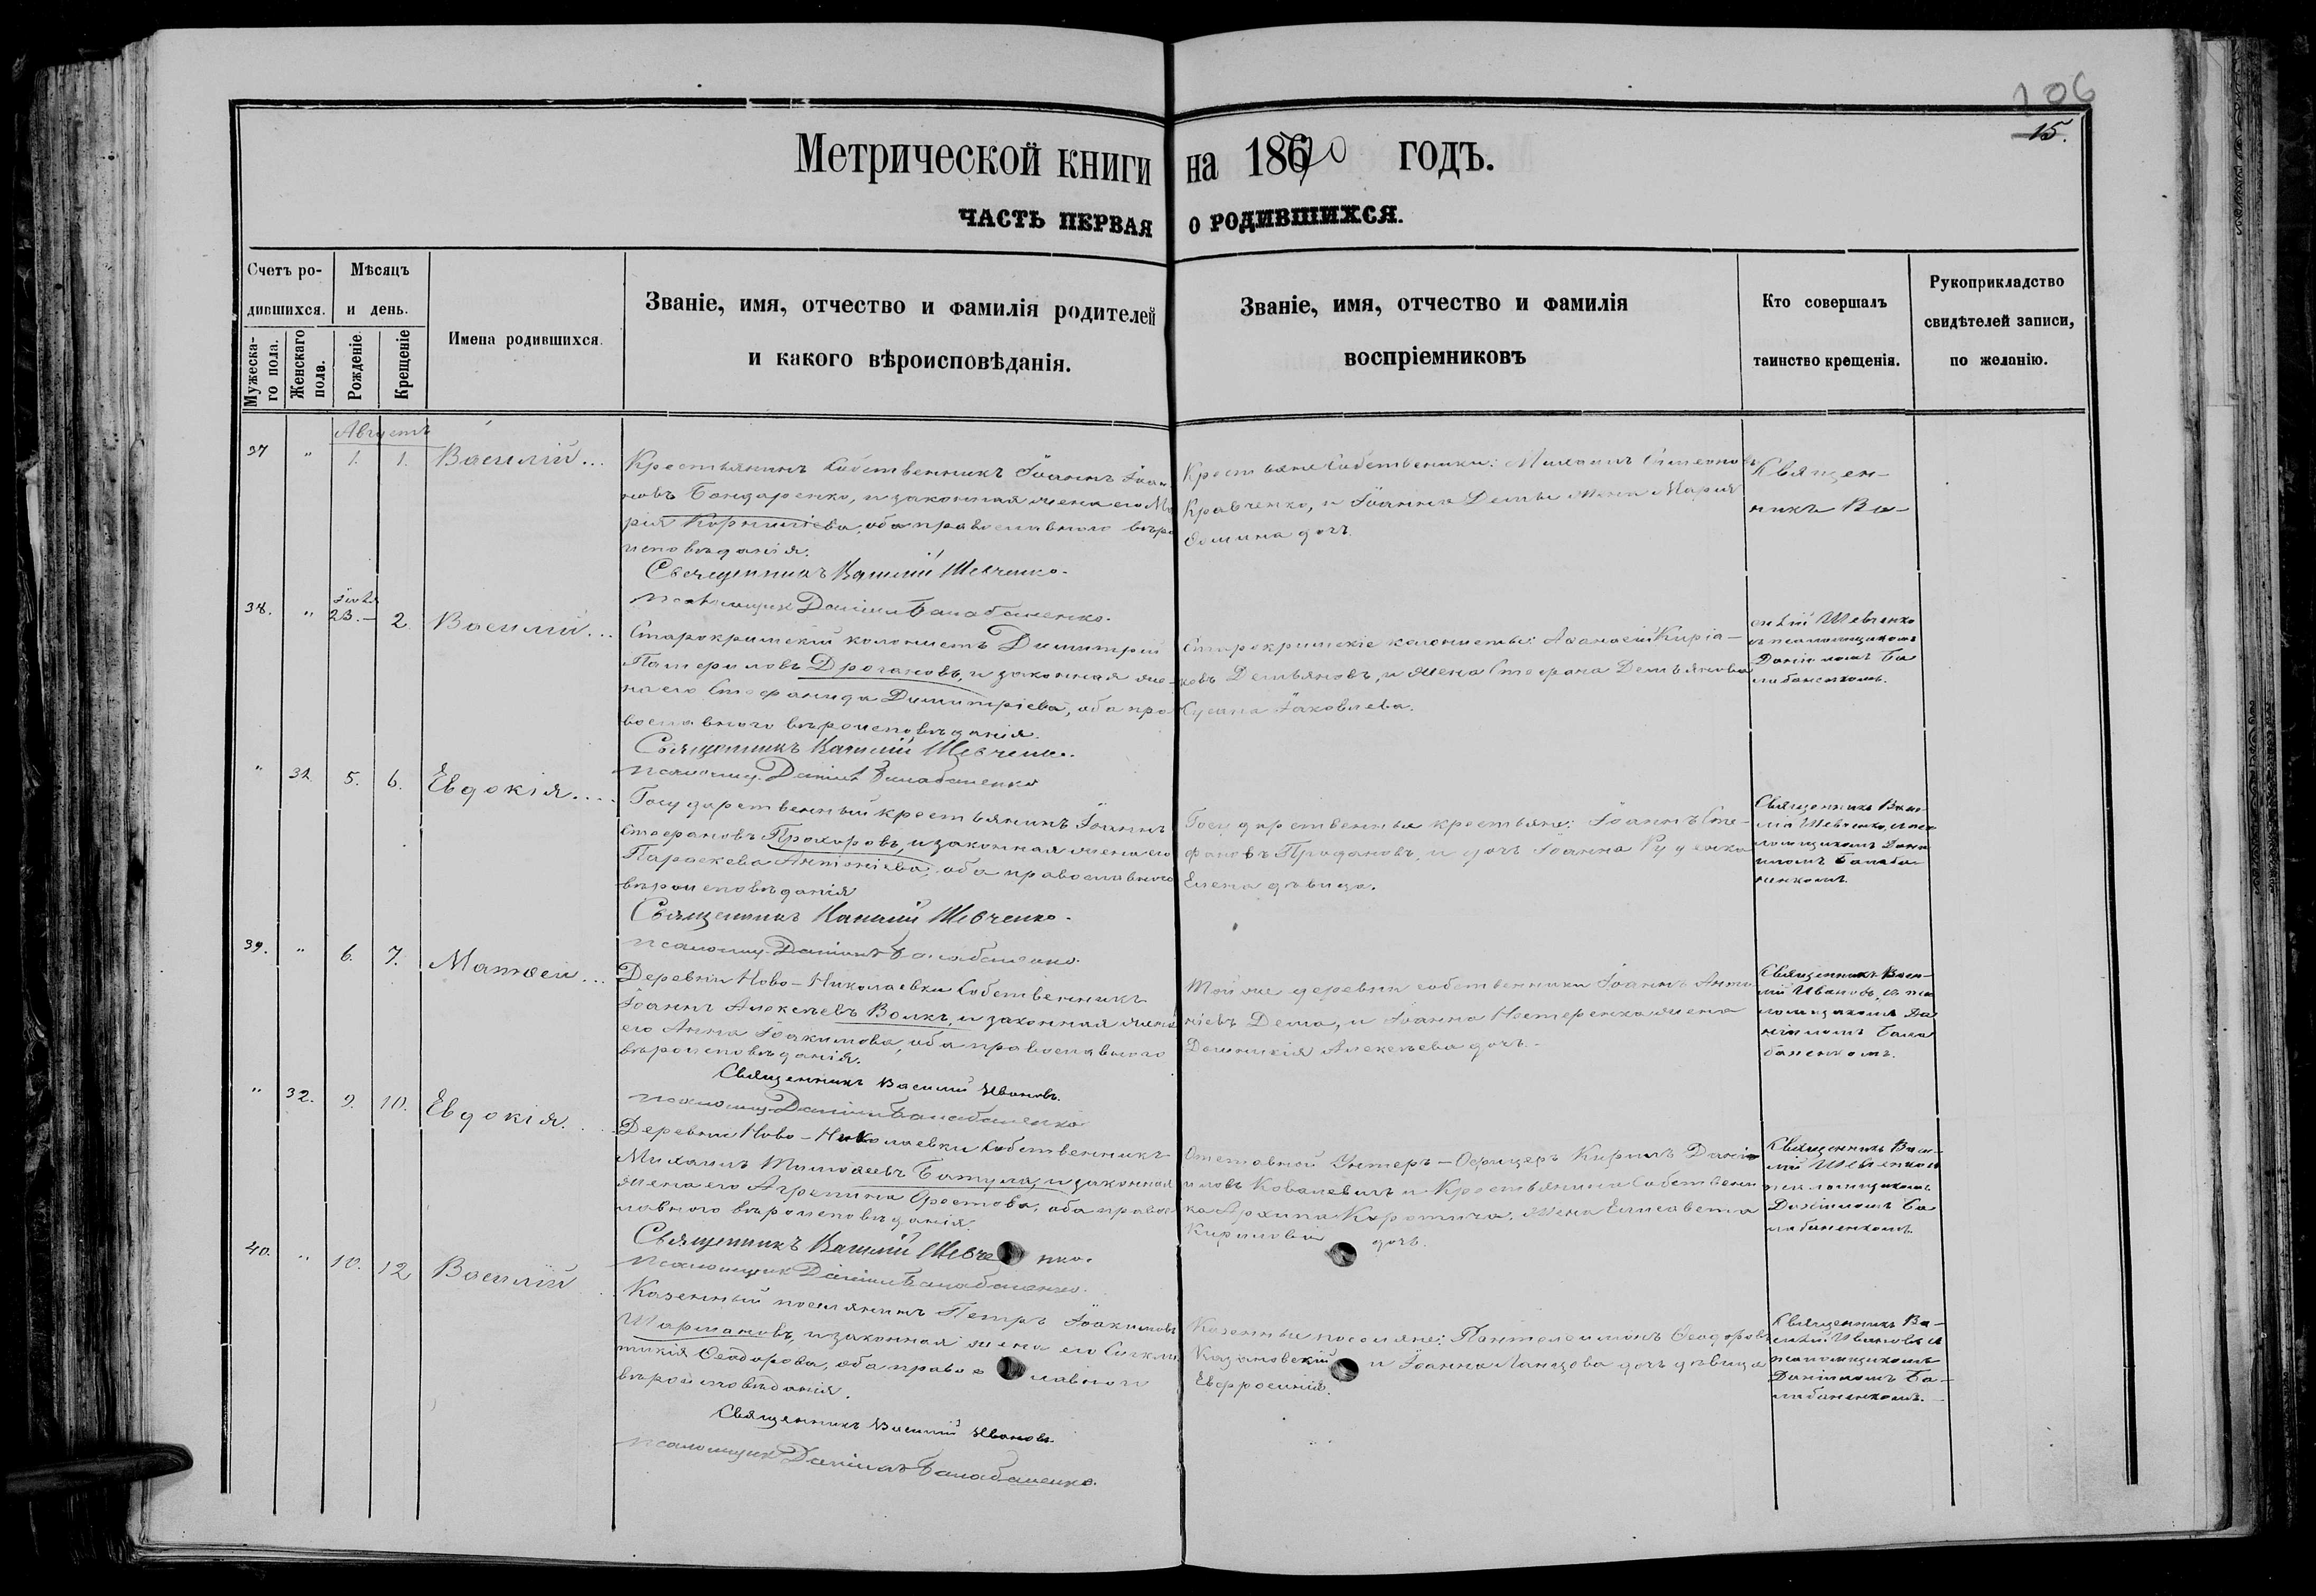 106
15.
Метрической книги на 1870 годъ.
ЧАСТЬ ПЕРВАЯ О РОДИВШИХСЯ.
Счетъ родившихся.
Мужескаго пола.
Женскаго пола.
Мѣсяцъ и день.
Рожденіе.
Крещеніе
Имена родившихся.
Званіе, имя, отчество и фамилія родителей
и какого вѣроисповѣданія.
Званіе, имя, отчество и фамилія
воспріемниковъ
Кто совершалъ
таинство крещенія.
Рукоприкладство
свидѣтелей записи,
по желанію.
Августъ
37 " 1. 1. Василій...
Крестьянинъ Собственникъ Іоаннъ Іоан
новъ Бондаренко, и законная жена его Ма
рія Корниліева, оба православного вѣро
исповѣданія.
Священникъ Василій Шевченко.
псаломщикъ Даніилъ Балабаненко.
Крестьяне Собственники: Михаилъ Симеоновъ
Кравченко, и Іоанна Демы жена Марія
Ѳомина дочь.
Священ-
никъ Ва-
силій Шевченко
съ псаломщикомъ
Даніиломъ Ба
лабаненкомъ.
38. " Іюля 23. 2. Василій...
Старокрымскій колонистъ Димитрій
Дрогановъ, и законная же-
на его Стефанида Димитріева, оба пра
вославного вѣроисповѣданія.
Священникъ Василій Шевченко.
псаломщ. Даніилъ Балабаненко
Старокрымскіе колонисты: Аѳанасій Киріа-
ковъ Демьяновъ, и жена Стефана Демьянова
Сусана Іаковлева.
" 31 5. 6. Евдокія....
Государственный крестьянинъ Іоаннъ
Стефановъ Прохоровъ, и законная жена его
Параскева Антоніева, оба православного
вѣроисповѣданія
Священникъ Василій Шевченко.
псаломщ. Даніилъ Балабаненко.
Государственные крестьяне: Іоаннъ Сте-
фановъ Продановъ, и дочь Іоанна Руденка
Елена дѣвица.
Священникъ Васи-
лій Шевченко, съ пса
ломщикомъ Дани
иломъ Балаба
ненкомъ.
39. " 6. 7. Матѳей...
Деревни Ново-Николаевки Собственникъ
Іоаннъ Алексѣевъ Волкъ, и законная жена
его Анна Іоакимова, оба православного
вѣроисповѣданія.
Священникъ Василій Ивановъ.
псаломщ. Даніилъ Балабаненко
Той же деревни собственники Іоаннъ Анто
ніевъ Дема, и Іоанна Нестеренка жена
Домникія Алексѣева дочь.
Священникъ Васи-
лій Ивановъ, съ пса
ломщикомъ Да
ніиломъ Бала
баненкомъ.
" 32. 9. 10. Евдокія...
Деревни Ново-Николаевки Собственникъ
Михаилъ Тимоѳеевъ Батула, и законная
жена его Агрепина Ѳеотова, оба правос
лавного вѣроисповѣданія.
Священникъ Василій Шевченко.
псаломщикъ Даніилъ Балабаненко.
Отставной Унтеръ-Офицеръ Кирилъ Дані
иловъ Ковалевичъ и Крестьянина Собственни
ка Архипа Коротича, жена Елисавета
Кирилова дочь.
Священникъ Васи-
лій Шевченко съ
псаломщикомъ
Даніиломъ Ба
лабаненкомъ.
40. " 10. 12. Василій
Казенный поселянинъ Петръ Іоакимовъ
Шармановъ, и законная жена его Сигкли
тикія Ѳеодорова, оба православного
вѣроисповѣданія.
Священникъ Василій Ивановъ.
псаломщикъ Даніилъ Балабаненко.
Казенные поселяне: Пантелеимонъ Ѳеодоровъ
Казановскій и Іоанна Ланцова дочь дѣвица
Евфросинія.
Священникъ Ва-
силій Ивановъ съ
псаломщикомъ
Даніиломъ Ба-
лабаненкомъ.